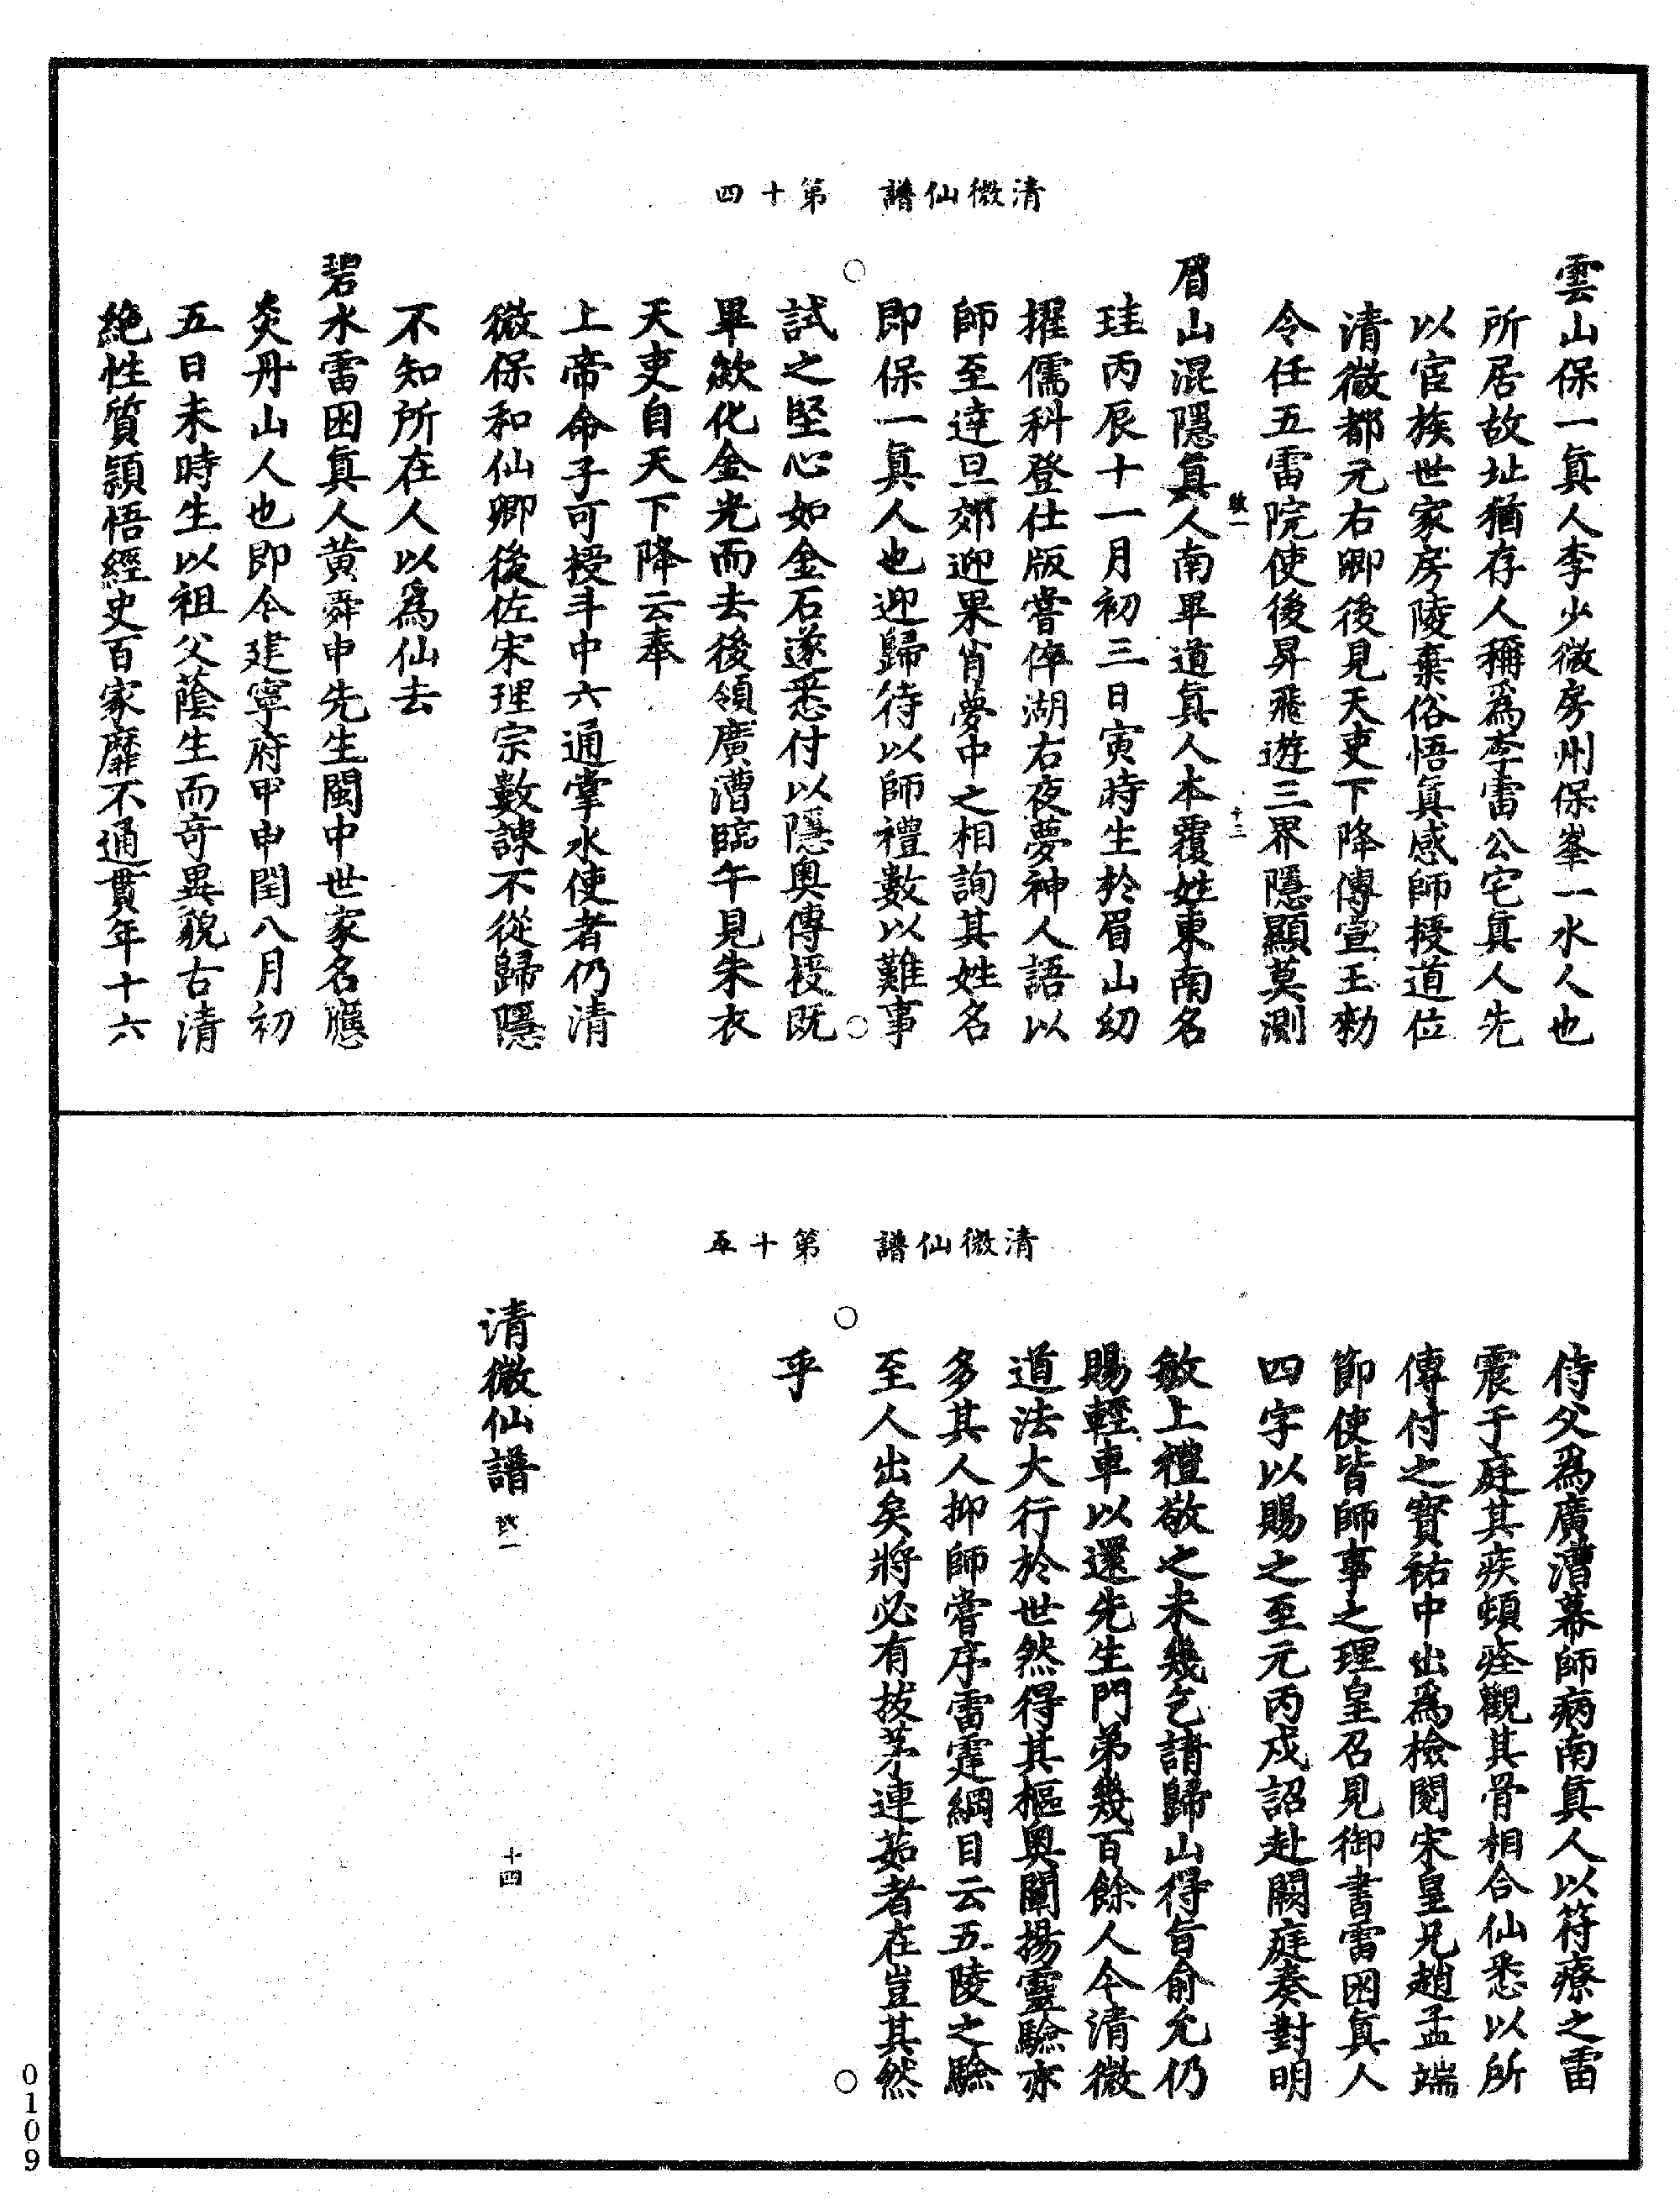 清微仙譜　第十四
雲山保一真人李少微房州保峯一水人也
所居故址猶存人稱爲李雷公宅真人先
以官族世家房陵棄俗悟真感師授道位
清微都元右卿後見天吏下降傳宣玉勑
令任五雷院使後昇飛遊三界隱顯莫測
敂一　十三
眉山混隱真人南畢道真人本覆姓東南名
珪丙辰十一月初三日寅時生於眉山幼
擢儒科登仕版嘗倅湖右夜夢神人語以
師至達旦郊迎果肖夢中之相詢其姓名
即保一真人也迎歸待以師禮數以難事
試之堅心如金石遂悉付以隱奧傳授既
畢歘化金光而去後領廣漕臨午見朱衣
天吏自天下降云奉
上帝命子可授斗中六通掌水使者仍清
微保和仙卿後佐宋理宗數諫不從歸隱
不知所在人以爲仙去
碧水雷囦真人黃舜申先生閩中世家名應
炎丹山人也即今建寧府甲申閏八月初
五日未時生以祖父蔭生而奇異貌古清
絶性質頴悟經史百家靡不通貫年十六
清微仙譜　第十五
侍父爲廣漕幕師病南真人以符療之雷
震于庭其疾頓痊觀其骨相合仙悉以所
傳付之寶祐中出爲檢閱宋皇兄趙孟端
節使皆師事之理皇召見御書雷囦真人
四字以賜之至元丙戌詔赴闕庭奏對明
敏上禮敬之未幾乞請歸山得旨俞允仍
賜輕車以還先生門弟幾百餘人今清微
道法大行於世然得其樞奧闡揚靈驗亦
多其人抑師嘗序雷霆綱目云五陵之驗
至人出矣將必有拔茅連茹者在豈其然
乎
清微仙譜　敂一　十四
0109